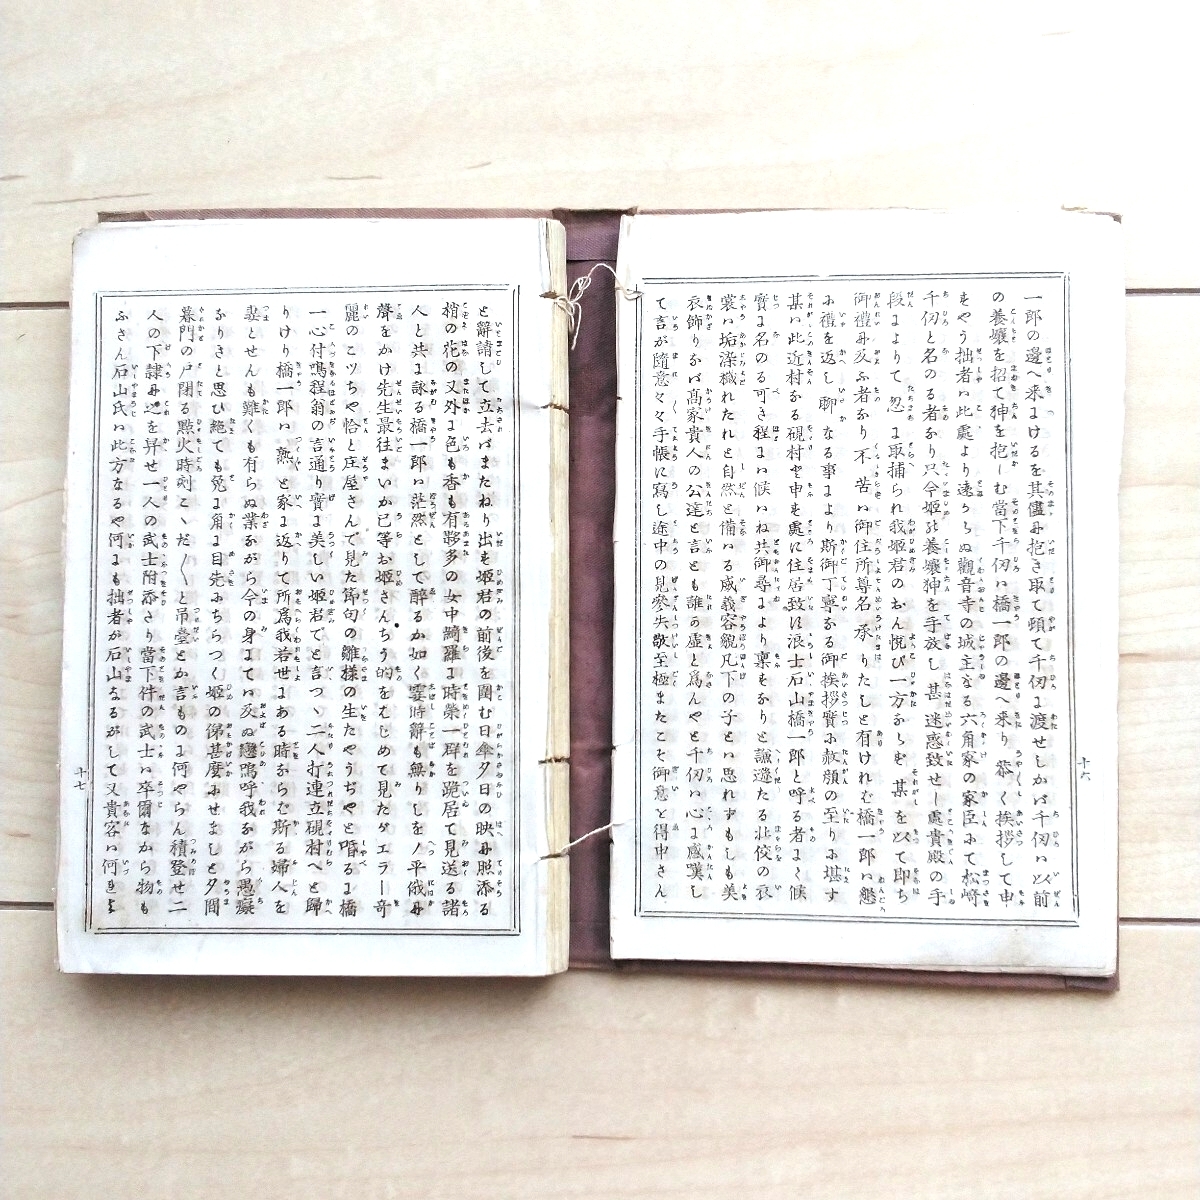 一郎の邊へ来にけるを其儘に抱き取て頓て千仞に渡せしかバ千仞ハ以前
の養嬢を招て狆を抱しむ當下千仞ハ橋一郎の邊へ来り恭しく挨拶して申
すやう拙者ハ此處より遠からぬ觀音寺の城主なる六角家の家臣にて松崎
千仞と名のる者なり只今姫が養嬢狆を手放し甚迷惑致せし處貴殿の手
段によりて忽に取捕られ我姫君のおん悦び一方ならず某を以て即ち
御禮に及ふ者なり不苦ハ御住所尊名承りたしと有けれバ橋一郎ハ慇
に禮を返し聊なる事により斯御丁寧なる御挨拶實に赧顔の至りに堪す
某ハ此近村なる硯村と申す處に住居致す浪士石山橋一郎と呼る者に候
實に名のる可き程にハ候ハね共御尋により稟すなりと謙遜たる壮佼の衣
裳ハ垢染穢れたれと自然と備ハる威義容貌凡下の子とハ思れずもしも美
衣飾りなバ高家貴人の公達と言とも誰か虚と為んやと千仞ハ心に感嘆し
て言が隨意々々手帳に寫し途中の見參失敬至極またこそ御意と得申さん
十六
と辭請して立去バまたねり出す姫君の前後を圍む日傘夕日の映に照添る
梢の花の又外に色も香も有夥多の女中綺羅に時榮一群を跪居て見送る諸
人と共に詠る橋一郎ハ茫然として酔るか如く霎時辭も無りしを丿平俄に
聲をかけ先生最往まいか己等お姫さんちう的をはじめて見たがエラー奇
麗のこツちや恰と庄屋さんで見た節句の雛様の生たやうぢやと喧るに橋
一心付嗚程翁の言通り實に美しい姫君でと言つゝ二人打連立硯村へと歸
りけり橋一郎ハ熟と家に返りて所為我若世にある時ならむ斯る婦人を
妻とせんも難くも有らぬ業ながら今の身にてハ及ぬ戀嗚呼我ながら愚癡
なりきと思ひ絶ても兎に角に目先にちらつく姫の俤甚麼にせましと夕間
暮門の戸閉る點火時刻こゝだ〱と吊臺とか言ものに何やらん積登せ二
人の下隷に之を舁せ一人の武士附添さり當下件の武士ハ卒爾なから物も
ふさん石山氏ハ此方なるや何にも拙者が石山なるがして又貴容ハ何れよ
十七